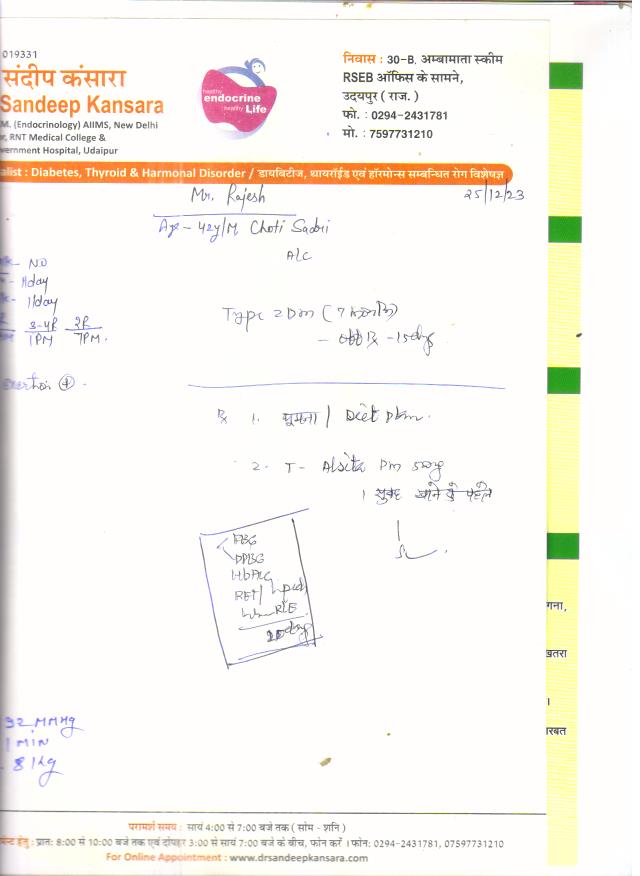 019331
संदीप कंसारा
Sandeep Kansara
M. (Endocrinology) AIIMS, New Delhi
r, RNT Medical College &
vernment Hospital, Udaipur
healthy
endocrine
healthy Life
निवास : 30-B, अम्बामाता स्कीम
RSEB ऑफिस के सामने,
उदयपुर ( राज. )
फो. : 0294-2431781
मो. : 7597731210
alist : Diabetes, Thyroid & Harmonal Disorder / डायबिटीज, थायरॉईड एवं हॉरमोन्स सम्बन्धित रोग विशेषज्ञ
Mr. Rajesh
25/12/23
Age - 42y/M Choti Sadri
A/C
NO
11day
11day
3-4R 2R
1PM 7PM.
exertion +
Type 2 Dm (7
- off Rx - 15days
Rx 1. घूमना / Diet plan.
2. T- Alsita Dm 500
1 सुबह खाने से पहले
FBG
PPBG
HbA1c
RFT/ lipid
RE
20days
32 MMHg
1 MIN
8 Kg
गना,
खतरा
।
रबत
परामर्श समय : सायं 4:00 से 7:00 बजे तक ( सोम - शनि )
मेन्ट हेतु : प्रात: 8:00 से 10:00 बजे तक एवं दोपहर 3:00 से सायं 7:00 बजे के बीच, फोन करें । फोन: 0294-2431781, 07597731210
For Online Appointment : www.drsandeepkansara.com